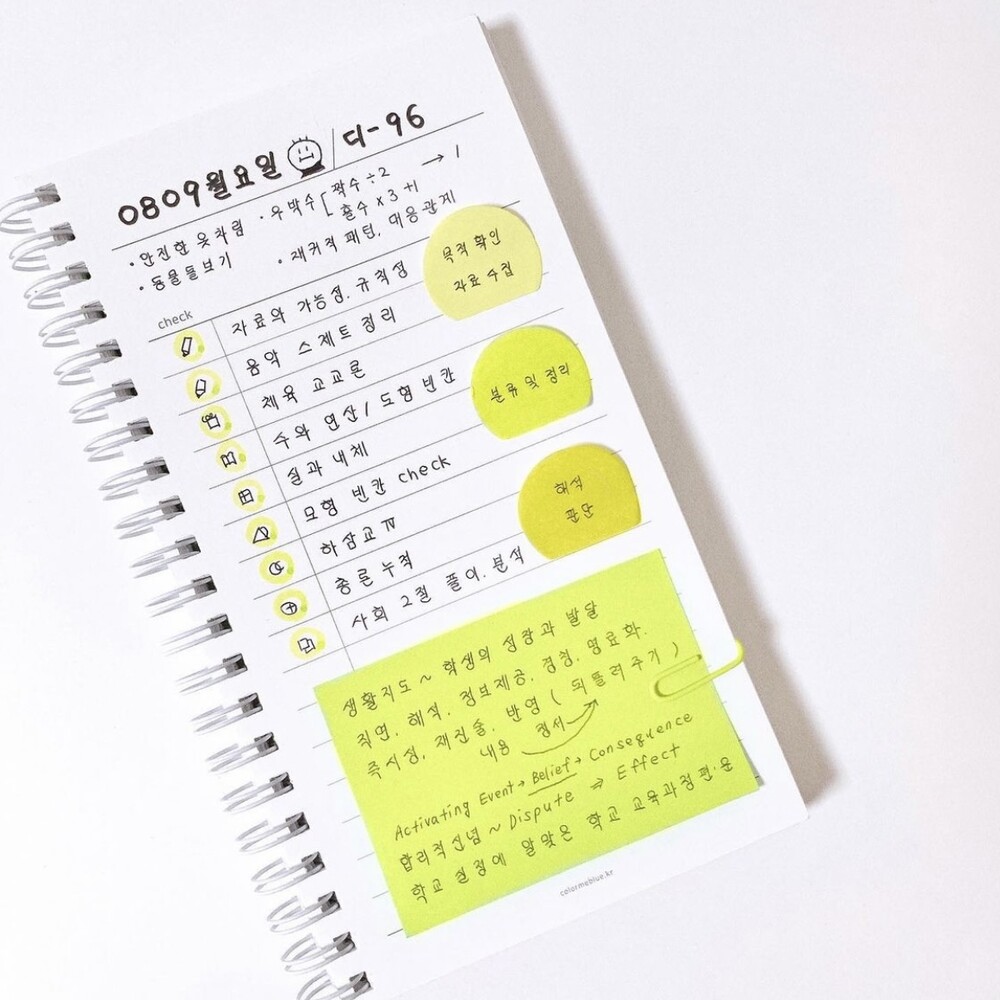 0809월요일 / 디-96
· 안전한 옷차림
· 동물돌보기
· 우박수 [ 짝수 ÷2
홀수 x3 +1
→ 1
· 재귀적 패턴, 대응관계
check
자료와 가능성. 규칙성
음악 스제트 정리
체육 교교론
수와 연산 / 도형 빈칸
실과 내체
모형 빈칸 check
하삼교 TV
총론 누적
사회 2절 풀이. 분석
목적 확인
자료 수집
분류 및 정리
해석
판단
생활지도 ~ 학생의 성장과 발달
직면. 해석. 정보제공. 경청. 명료화.
즉시성, 재진술. 반영 ( 되돌려주기 )
내용 정서
Activating Event → Belief → Consequence
합리적신념 ~ Dispute ⇒ Effect
학교 실정에 알맞은 학교 교육과정편·운
colormeblue.kr